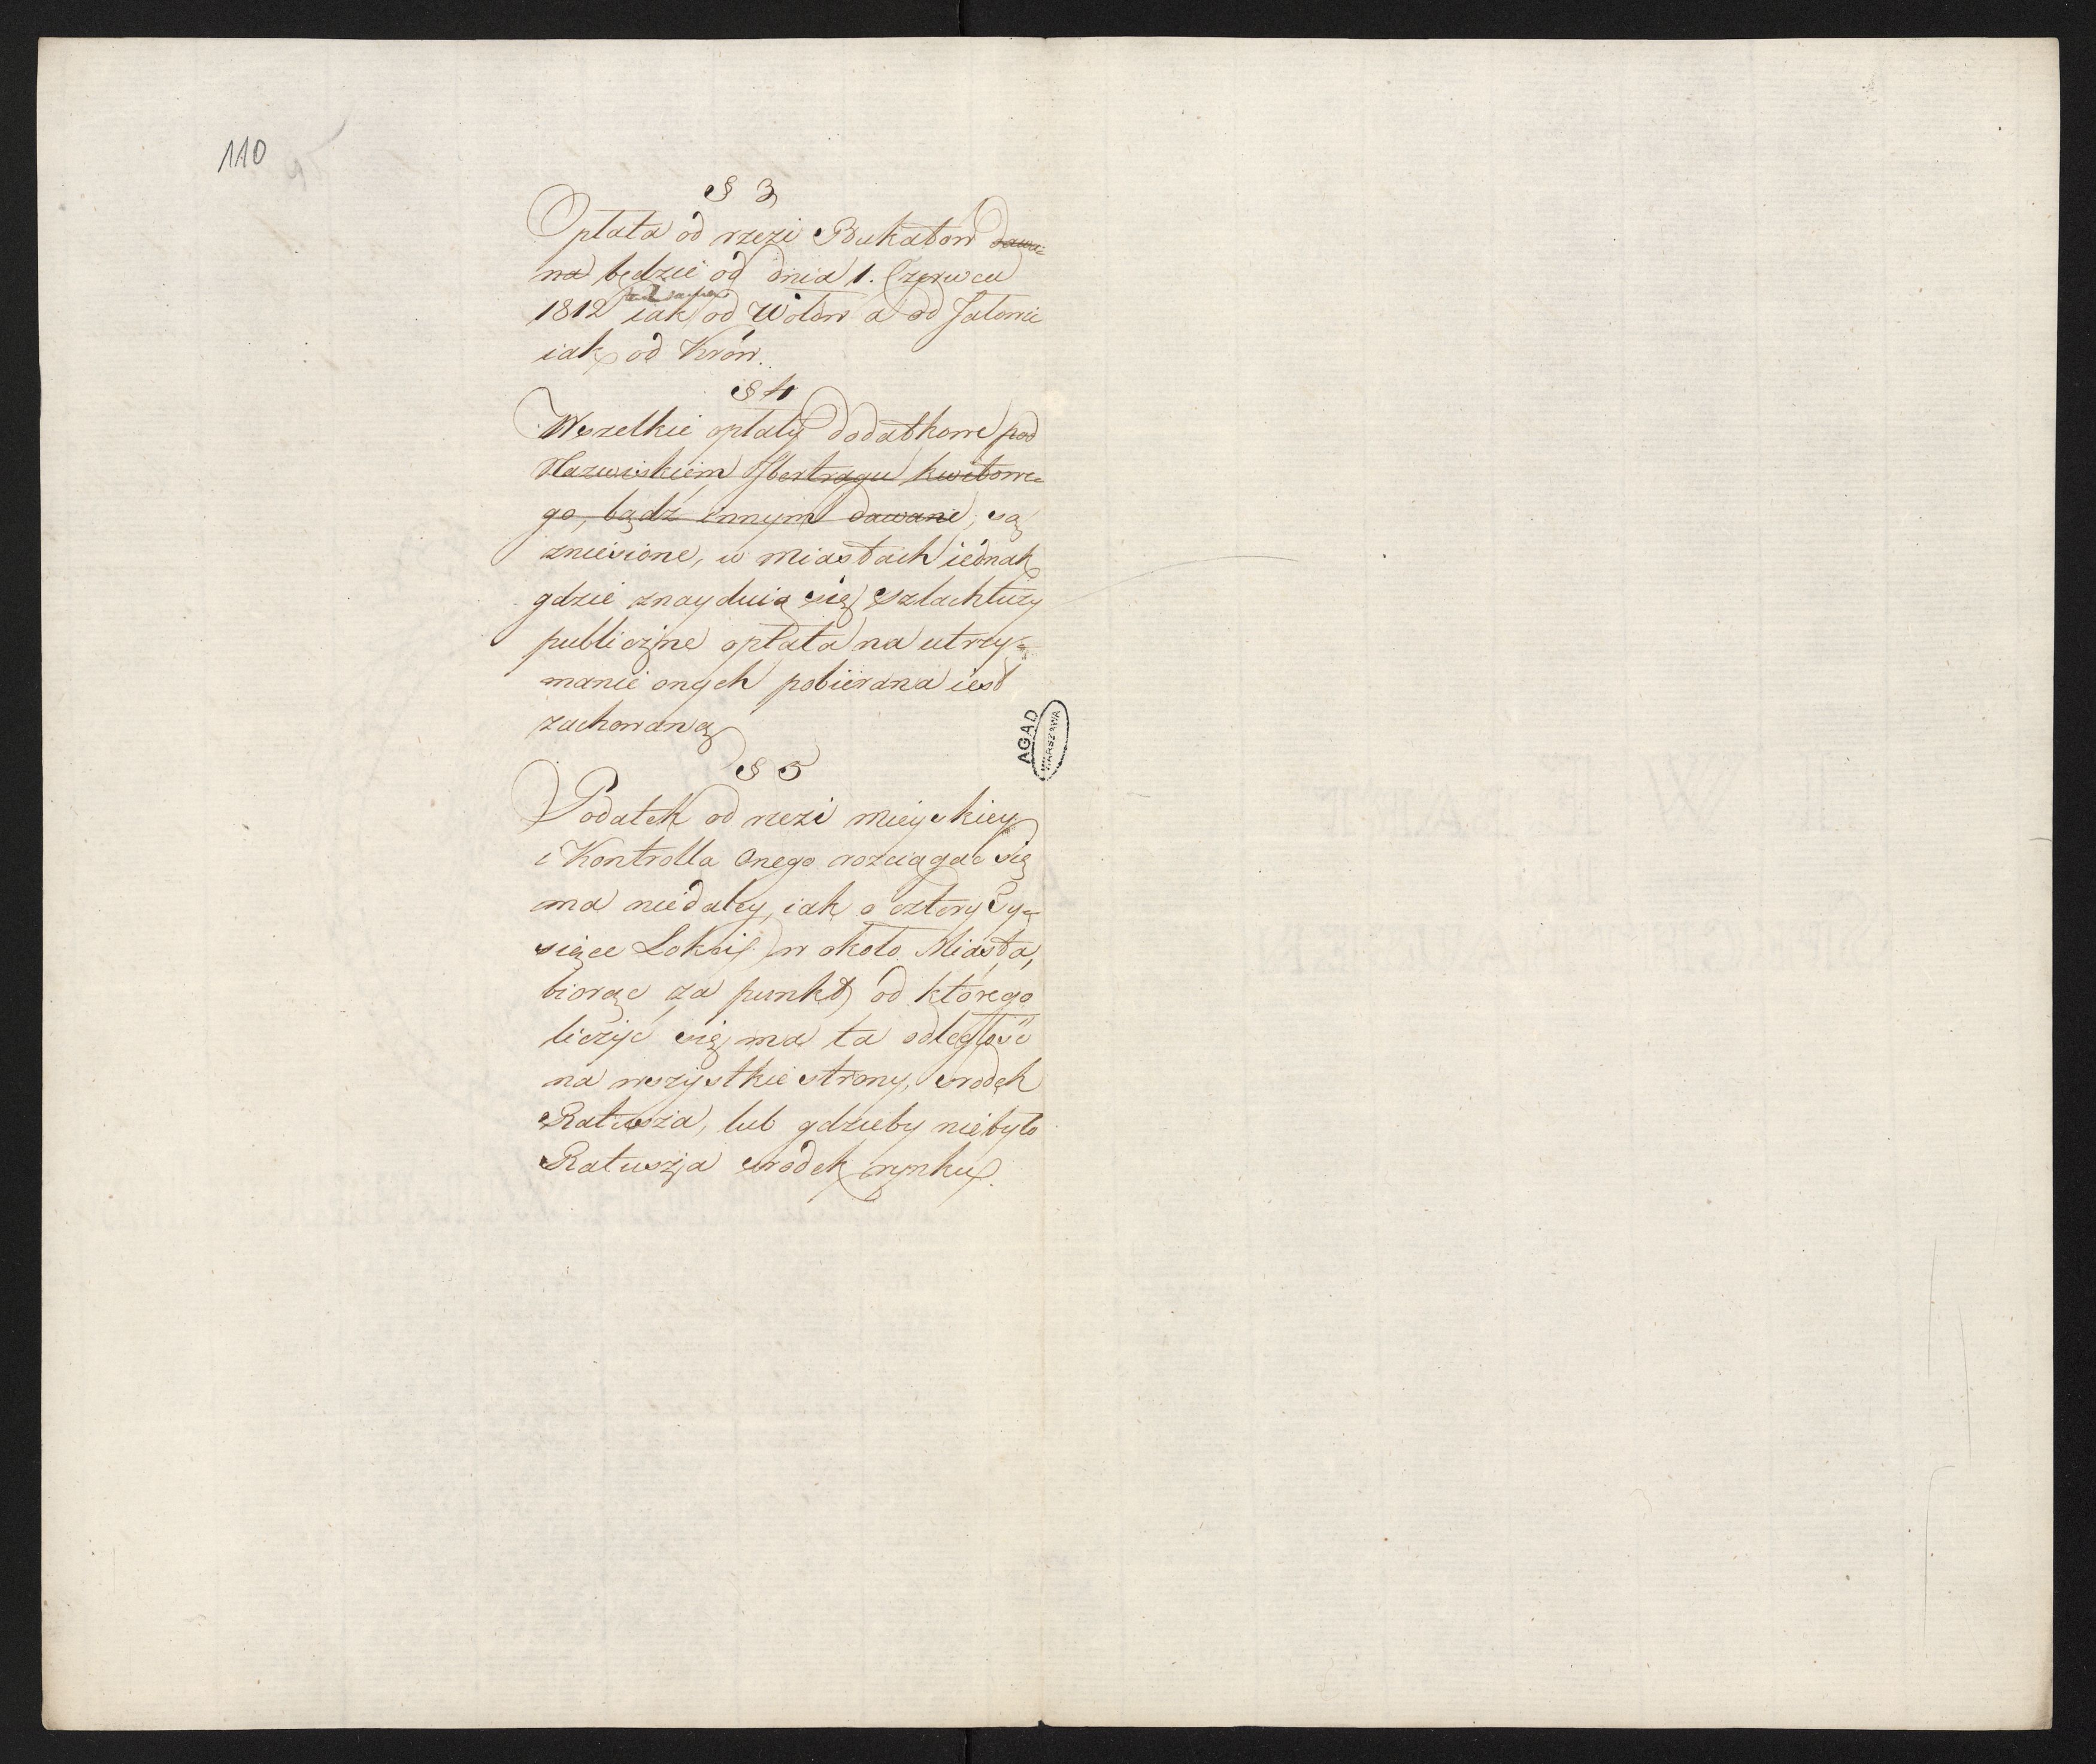 110
§ 3
Opłata od rzezi Bukatów dawa=
na będzie od dnia 1. Czerwca
taż sama
1812 iak od Wołów a od Jałowic
iak od Krów.
§ 4
Wszelkie opłaty dodatkowe pod
Nazwiskiem Ibertragu kwitowe=
go, bądź innym dawane, są
zniesione, w miastach iednak
gdzie znayduią się Szlachtuzy
publiczne opłata na utrzy=
manie onych pobierana iest
zachowaną
§ 5
Podatek od rzezi mieyskiey
i Kontrolla onego rozciągać się
ma niedaley, iak o cztery Ty=
siące Łokci w około Miasta,
biorąc za punkt od którego
liczyć się ma ta odległość
na wszystkie strony, srodek
Ratusza, lub gdzieby niebyło
Ratusza srodek rynku.
AGAD
WARSZAWA